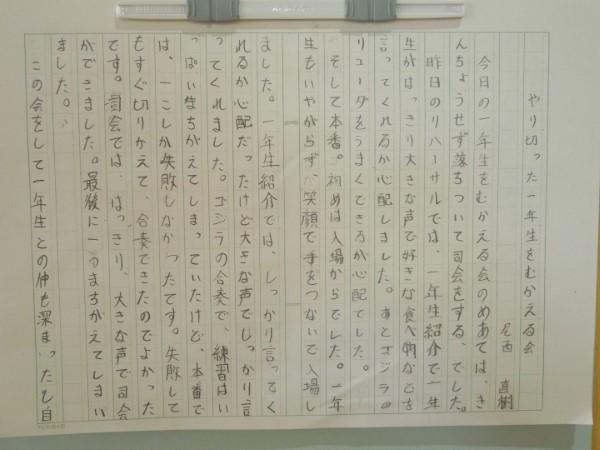 やり切った一年生をむかえる会
尾西 直樹
今日の一年生をむかえる会のめあては、き
んちょうせず落ちついて司会をする、でした。
昨日のリハーサルでは、一年生紹介で一年
生がはっきり大きな声で好きな食べ物などを
言ってくれるか心配しました。あとゴジラの
リコーダをうまくできるか心配でした。
そして本番。初めは入場からでした。一年
生もいやがらず、笑顔で手をつないで入場し
ました。一年生紹介では、しっかり言ってく
れるか心配だったけど大きな声でしっかり言
ってくれました。ゴジラの合奏で、練習はい
っぱいまちがえてしまっていたけど、本番で
は、一こしか失敗しなかったです。失敗して
もすぐ切りかえて、合奏できたのでよかった
です。司会では、はっきり、大きな声で司会
ができました。最後に一つまちがえてしまい
ました。
この会をして一年生との仲も深まったし自